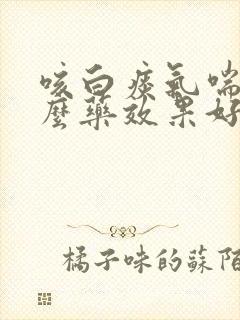 咳白痰氣喘
麼藥效果好
橘子味的蘇陌